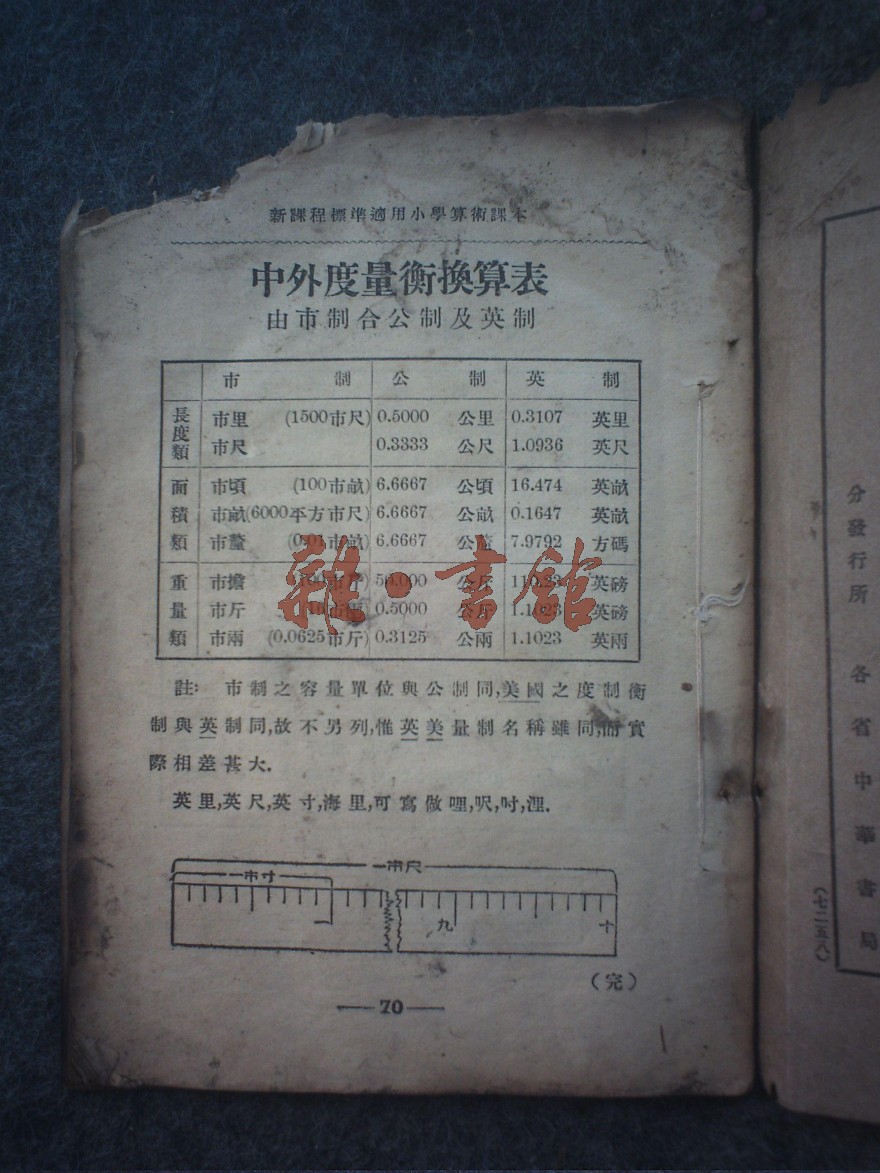 新課程標準適用小學算術課本
中外度量衡換算表
由市制合公制及英制
市制 公制 英制
長度類
市里 (1500市尺) 0.5000 公里 0.3107 英里
市尺 0.3333 公尺 1.0936 英尺
面積類
市頃 (100市畝) 6.6667 公頃 16.474 英畝
市畝(6000平方市尺) 6.6667 公畝 0.1647 英畝
市釐 (0.01市畝) 6.6667 公釐 7.9792 方碼
重量類
市擔 (100市斤) 50.000 公斤 110.23 英磅
市斤 0.5000 公斤 1.1023 英磅
市兩 (0.0625市斤) 0.3125 公兩 1.1023 英兩
註: 市制之容量單位與公制同,美國之度制衡
制與英制同,故不另列,惟英美量制名稱雖同,而實
際相差甚大.
英里,英尺,英寸,海里,可寫做哩,呎,吋,浬.
一市尺
一市寸
一 九 十
(完)
—70—
雜·書館
分發行所 各省中華書局
(七二五八)